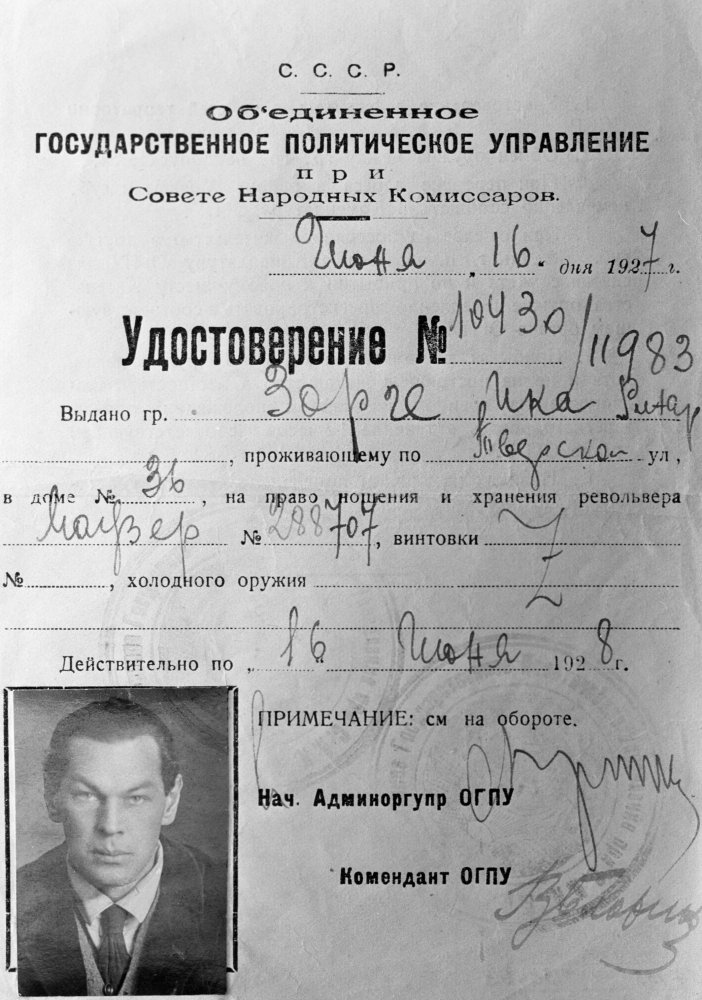 С. С. С. Р.
Об‘единенное
ГОСУДАРСТВЕННОЕ ПОЛИТИЧЕСКОЕ УПРАВЛЕНИЕ
при
Совете Народных Комиссаров.
Июня „ 16 “ дня 1927 г.
Удостоверение № 10430/11983
Выдано гр. Зорге Ика Рихар
, проживающему по Тверской ул ,
в доме № 36 , на право ношения и хранения револьвера
Маузер № 288707, винтовки
№ , холодного оружия
Действительно по „ 16 Июня 1928 г.
ПРИМЕЧАНИЕ: см на обороте.
Нач. Админоргупр ОГПУ
Комендант ОГПУ